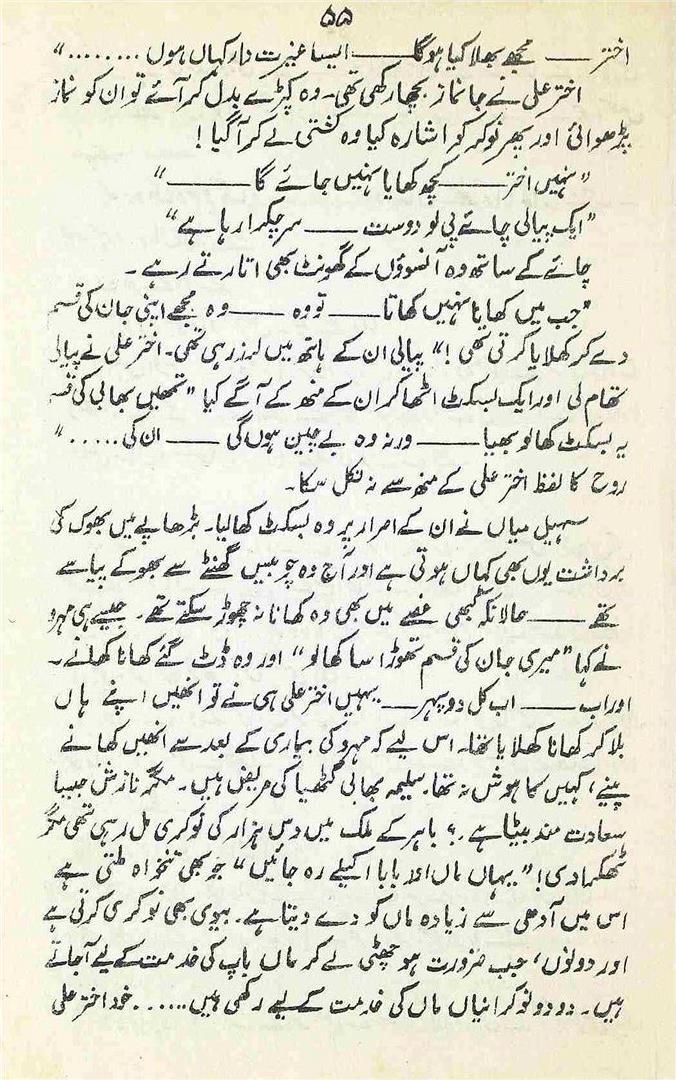 ۵۵
اختر ـــــ مجھے بھلا کیا ہوگا ـــــ ایسا غیرت دار کہاں ہوں ........"
اختر علی نے جانماز بچھا رکھی تھی۔ وہ کپڑے بدل کر آئے تو ان کو نماز
پڑھوائی اور پھر نوکر کو اشارہ کیا وہ کشتی لے کر آ گیا !
"نہیں اختر ـــــ کچھ کھایا نہیں جائے گا ـــــ"
"ایک پیالی چائے پی لو دوست ـــــ سر چکرا رہا ہے"
چائے کے ساتھ وہ آنسوؤں کے گھونٹ بھی اتارتے رہے ۔
"جب میں کھایا نہیں کھاتا ـــــ تو وہ ـــــ وہ مجھے اپنی جان کی قسم
دے کر کھلایا کرتی تھی !" پیالی ان کے ہاتھ میں لرز رہی تھی۔ اختر علی نے پیالی
تھام لی اور ایک بسکٹ اٹھا کر ان کے منھ کے آگے کیا "تمھیں بھابی کی قسم
یہ بسکٹ کھا لو بھیا ـــــ ورنہ وہ بے چین ہوں گی ـــــ ان کی ....."
روح کا لفظ اختر علی کے منھ سے نہ نکل سکا۔
سہیل میاں نے ان کے اصرار پر وہ بسکٹ کھا لیا۔ بڑھاپے میں بھوک کی
برداشت یوں بھی کہاں ہوتی ہے اور آج وہ چوبیس گھنٹے سے بھوکے پیاسے
تھے ـــــ حالانکہ کبھی غصے میں بھی وہ کھانا نہ چھوڑ سکتے تھے۔ جیسے ہی مہرو
نے کہا "میری جان کی قسم تھوڑا سا کھا لو" اور وہ ڈٹ گئے کھانا کھانے۔
اور اب ـــــ اب کل دوپہر ـــــ یہیں اختر علی ہی نے تو انھیں اپنے ہاں
بلا کر کھانا کھلایا تھا۔ اس لیے کہ مہرو کی بیماری کے بعد سے انھیں کھانے
پینے، کہیں کا ہوش نہ تھا۔ سلیمہ بھابی گٹھیا کی مریض ہیں۔ مگر نازش جیسا
سعادت مند بیٹا ہے۔ باہر کے ملک میں دس ہزار کی نوکری مل رہی تھی مگر
ٹھکرا دی! "یہاں ماں اور بابا اکیلے رہ جائیں" جو بھی تنخواہ ملتی ہے
اس میں آدھی سے زیادہ ماں کو دے دیتا ہے۔ بیوی بھی نوکری کرتی ہے
اور دونوں، جب ضرورت ہو چھٹی لے کر ماں باپ کی خدمت کے لیے آجاتے
ہیں۔ دو دو نوکرانیاں ماں کی خدمت کے لیے رکھی ہیں ...... خود اختر علی